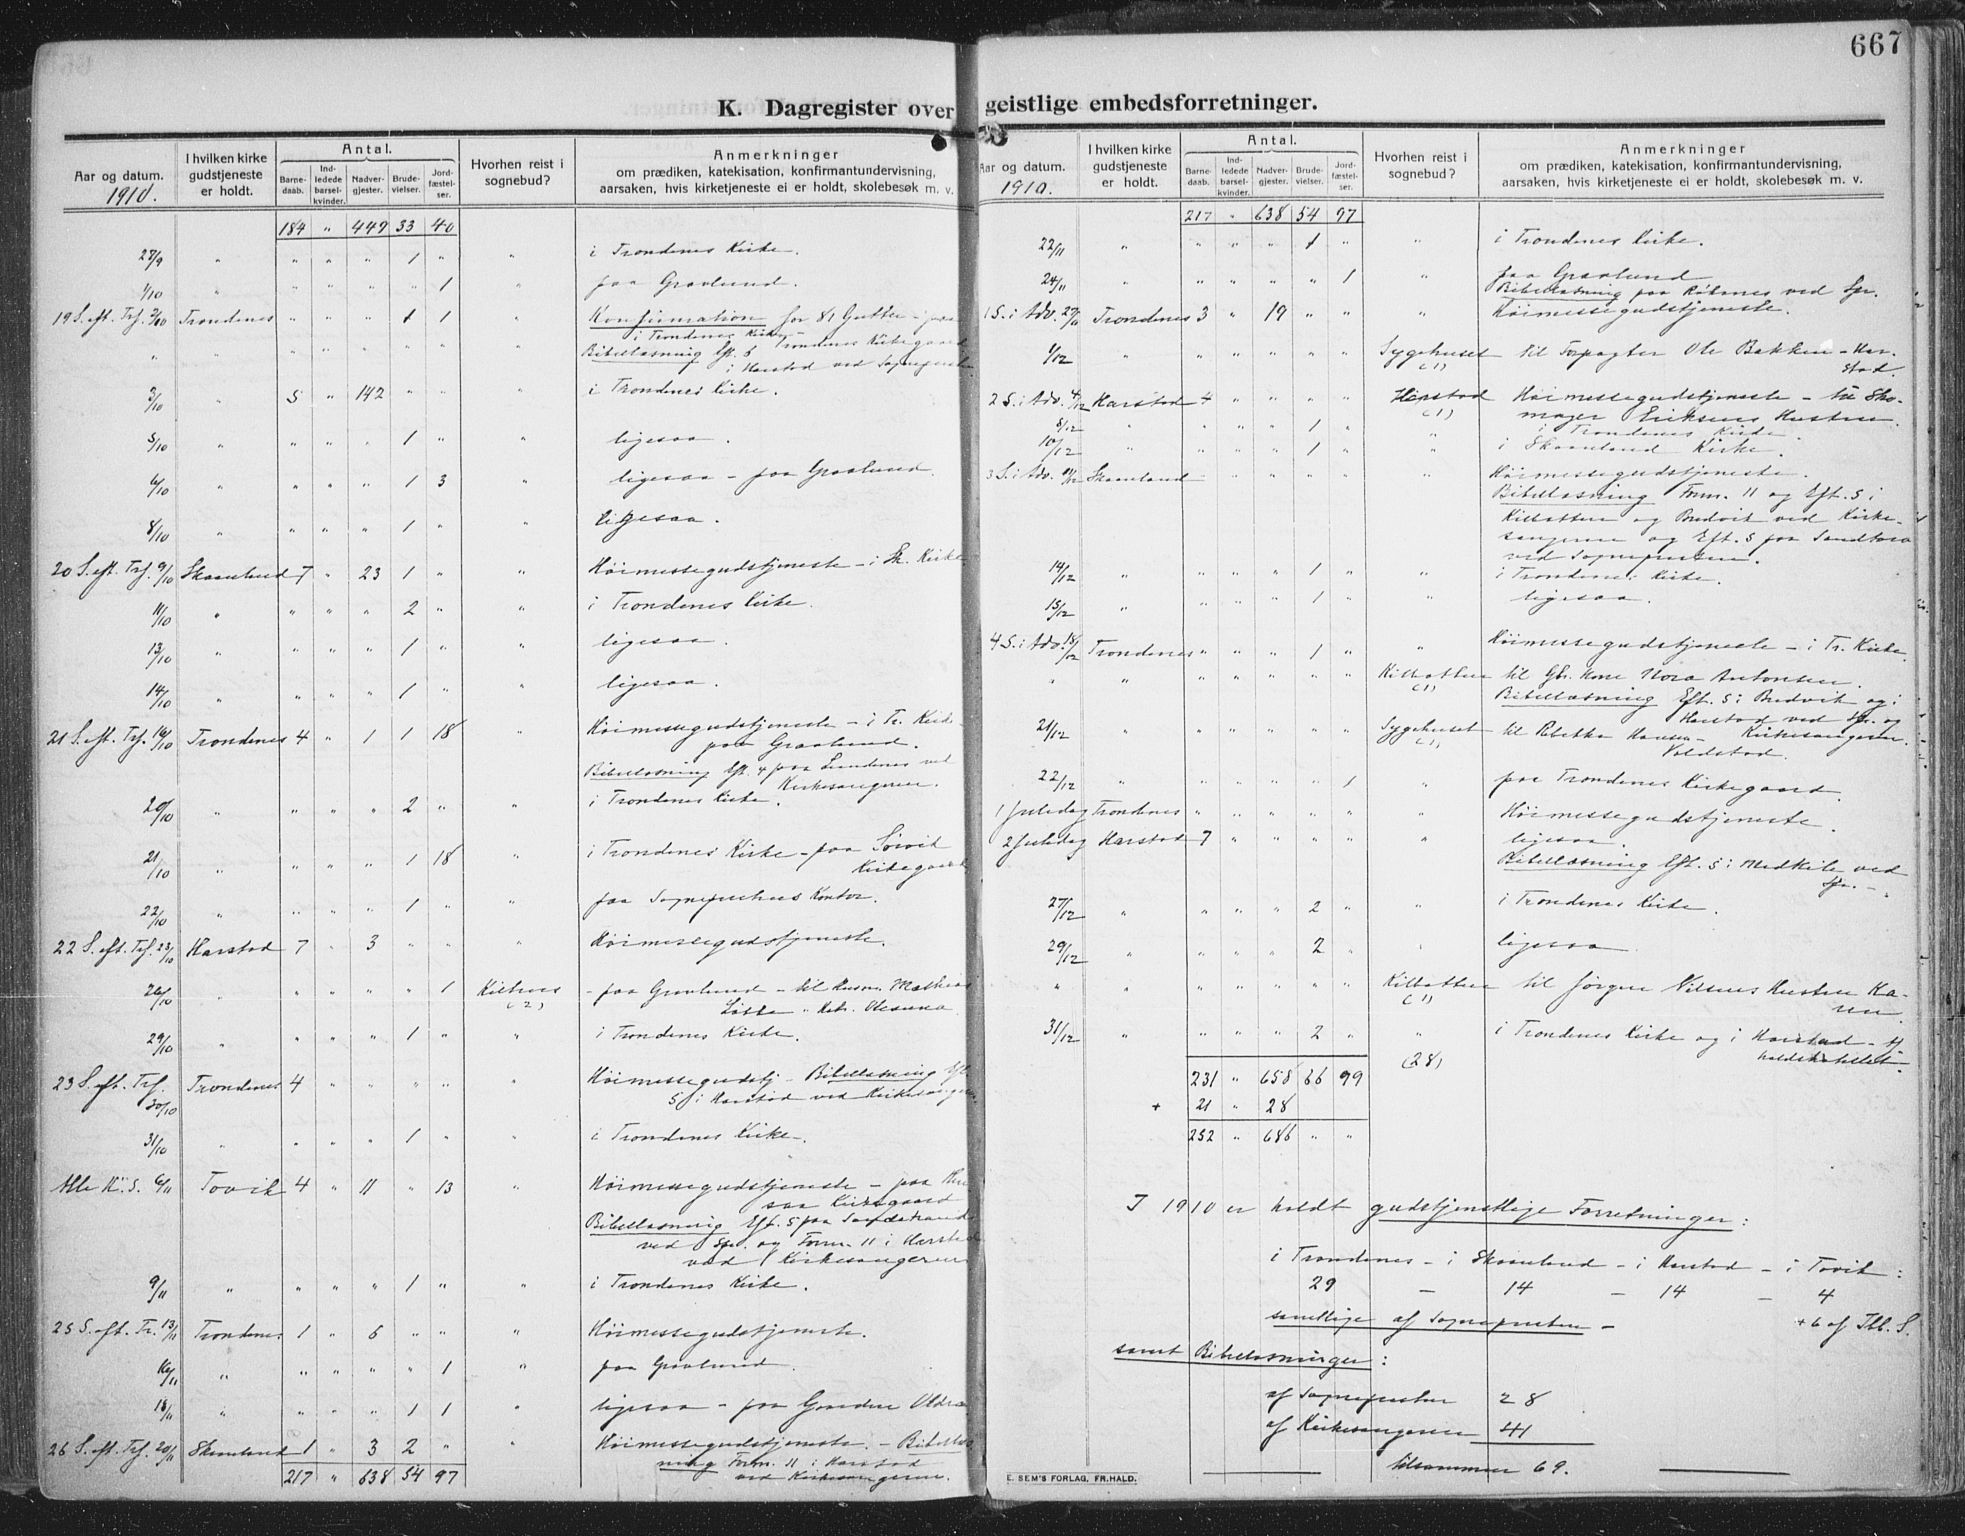 667
K. Dagregister over geistlige embedsforretninger.
Aar og datum. 1910.
I hvilken kirke gudstjeneste er holdt.
Antal.
Barnedaab.
Indledede barselkvinder.
Nadvergjester.
Brudevielser.
Jordfæstelser.
Hvorhen reist i sognebud?
Anmerkninger
om prædiken, katekisation, konfirmantundervisning,
aarsaken, hvis kirketjeneste ei er holdt, skolebesøk m. v.
184 " 449 33 40
27/9 " " " " 1 " " i Trondenes Kirke.
1/10 " " " " " 1 " paa Gravlund.
19 S. eft. Trf. 2/10 Trondenes " " " 1 1 " Konfirmation for 81 Gutter
i Trondenes Kirke Trondenes Kirkegaard
" " " " " " " Bibellæsning Eft. 5
i Harstad ved Sognepresten
3/10 " 5 " 142 " " " i Trondenes Kirke.
5/10 " " " " 1 " " ligesaa.
6/10 " " " " 1 3 " ligesaa - paa Gravlund.
8/10 " " " " 1 " " ligesaa.
20 S. eft. Trf. 9/10 Skaanland 7 " 23 1 " " Höimessegudstjeneste - i Sk. Kirke
11/10 " " " " 2 " " i Trondenes Kirke.
13/10 " " " " 1 " " ligesaa.
14/10 " " " " 1 " " ligesaa.
21 S. eft. Trf. 16/10 Trondenes 4 " 1 1 18 " Höimessegudstjeneste - i Tr. Kirke
paa Gravlund.
Bibellæsning Eft. 4 paa Lundenes ved
Kirkesangeren.
20/10 " " " " 2 " " i Trondenes Kirke.
21/10 " " " " 1 18 " i Trondenes Kirke - paa Sörvik
Kirkegaard
22/10 " " " " 1 " " paa Sogneprestens Kontor.
22 S. eft. Trf. 23/10 Harstad 7 " 3 " " " Höimessegudstjeneste.
26/10 " " " " " 1 Kilhus (2) - paa Gravlund - til Husm. Mathias
29/10 " " " " 1 " " i Trondenes Kirke.
23 S. eft. Trf. 30/10 Trondenes 4 " " " " " Höimessegudstj. - Bibellæsning Eft.
5 i Harstad ved Kirkesangeren
31/10 " " " " 1 " " i Trondenes Kirke.
Alle H. S. 6/11 Tovik 4 " 11 " 13 " Höimessegudstjeneste - paa
Kirkegaard
Bibellæsning Eft. 5 paa Sandstrand
ved Spr. og Form. 11 i Harstad
ved Kirkesangeren
9/11 " " " " 1 " " i Trondenes Kirke.
25 S. eft. Tr. 13/11 Trondenes 1 " 6 " " " Höimessegudstjeneste.
16/11 " " " " " 1 " paa Gravlund.
18/11 " " " " 1 1 " ligesaa - paa Gaarden
26 S. eft. Trf. 20/11 Skaanland 1 " 3 2 " " Höimessegudstjeneste. - Bibellæs
ning Form. 11 i Harstad
ved Kirkesangeren.
217 " 638 54 97
Aar og datum. 1910.
I hvilken kirke gudstjeneste er holdt.
Antal.
Barnedaab.
Indledede barselkvinder.
Nadvergjester.
Brudevielser.
Jordfæstelser.
Hvorhen reist i sognebud?
Anmerkninger
om prædiken, katekisation, konfirmantundervisning,
aarsaken, hvis kirketjeneste ei er holdt, skolebesøk m. v.
217 " 638 54 97
22/11 " " " " 1 " " i Trondenes Kirke.
24/11 " " " " " 1 " paa Gravlund
Bibellæsning paa ved Spr.
1 S. i Adv. 27/11 Trondenes 3 " 19 " " " Höimessegudstjeneste.
1/12 " " " " " " Sygehuset (1) til Forpagter Ole Bakken - Har-
stad.
2 S. i Adv. 4/12 Harstad 4 " " " " Harstad (1) Höimessegudstjeneste - til Sko-
mager Eriksens Hustru.
8/12 " " " " 1 " " i Trondenes Kirke.
10/12 " " " " 1 " " i Skaanland Kirke.
3 S. i Adv. 11/12 Skaanland " " " " " " Höimessegudstjeneste.
Bibellæsning Form. 11 og Eft. 5 i
Kilbotten og Bredvik ved Kirke-
sangeren og Eft. 5 paa Sandtorv
ved Sognepresten.
14/12 " " " " 1 " " i Trondenes Kirke.
15/12 " " " " 1 " " ligesaa.
4 S. i Adv. 18/12 Trondenes " " " 1 " " Höimessegudstjeneste - i Tr. Kirke.
" " " " " " " Kilbotten (1) til Gbr. Kone Nora Antonsen.
Bibellæsning Eft. 5 i Bredvik og i
Harstad ved Spr. og
Kirkesangeren.
21/12 " " " " " " Sygehuset (1) til Rebekka Hansen - Voldstad.
22/12 " " " " " 1 " paa Trondenes Kirkegaard.
1 Juledag Trondenes " " " " " " Höimessegudstjeneste.
2 Juledag Harstad 7 " " " " " ligesaa.
Bibellæsning Eft. 5 i Medkile ved
Spr. -
27/12 " " " " 2 " " i Trondenes Kirke.
29/12 " " " " 2 " " ligesaa
" " " " " " " Kilbotten (1) til Jörgen Nilsens Hustru Ka-
ren.
31/12 " " " " 2 " " i Trondenes Kirke og i Harstad - af
(28)
231 " 658 66 99
+ 21 " 28
252 " 686 " "
I 1910 er holdt gudstjenstlige Forretninger:
i Trondenes - i Skaanland - i Harstad - i Tovik:
29 - 14 - 14 - 4
samtlige af Sognepresten - + 6 af Tbl. S.
samt Bibellæsninger:
af Sognepresten 28
af Kirkesangeren 41
tilsammen 69.
E. SEM'S FORLAG, FR.HALD.